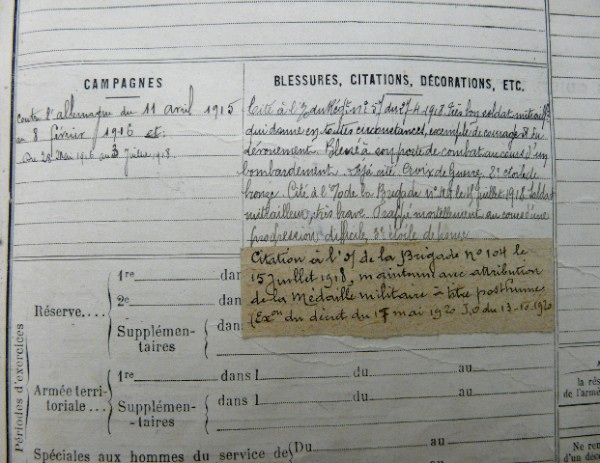 CAMPAGNES
contre l'allemagne du 11 avril 1915
au 8 février 1916 et
du 28 Mai 1916 au 3 Juillet 1918.
BLESSURES, CITATIONS, DÉCORATIONS, ETC.
Cité à l'O du Rég^nt n° 57 du 27-4-1918. Très bon soldat mitraill^r
qui donne en toutes circonstances, exemple de courage et du
dévouement. Blessé à son poste de combat au cours d'un
bombardement. Déjà cité. Croix de Guerre. 2^e étoile de
bronze. Cité à l'O/ de la Brigade n° 104 le 15 juillet 1918. Soldat
mitrailleur, très brave. Frappé mortellement au cours d'une
progression difficile, 3^e étoile de bronze
Citation à l'O/ de la Brigade N° 104 le
15 Juillet 1918, maintenue avec attribution
de la Médaille militaire à titre posthume
(Ex^on du décret du 17 mai 1920 J.O du 13-10-1920
Périodes d'exercices
Réserve....
1re dans
2e dans
Supplémen-
taires
dans
dans
Armée terri-
toriale...
1re dans l du au
Supplémen-
-taires
dans l du au
dans l du au
Spéciales aux hommes du service de
Du au
Du au
la rés
de l'armé
Ne ren
d'un déc